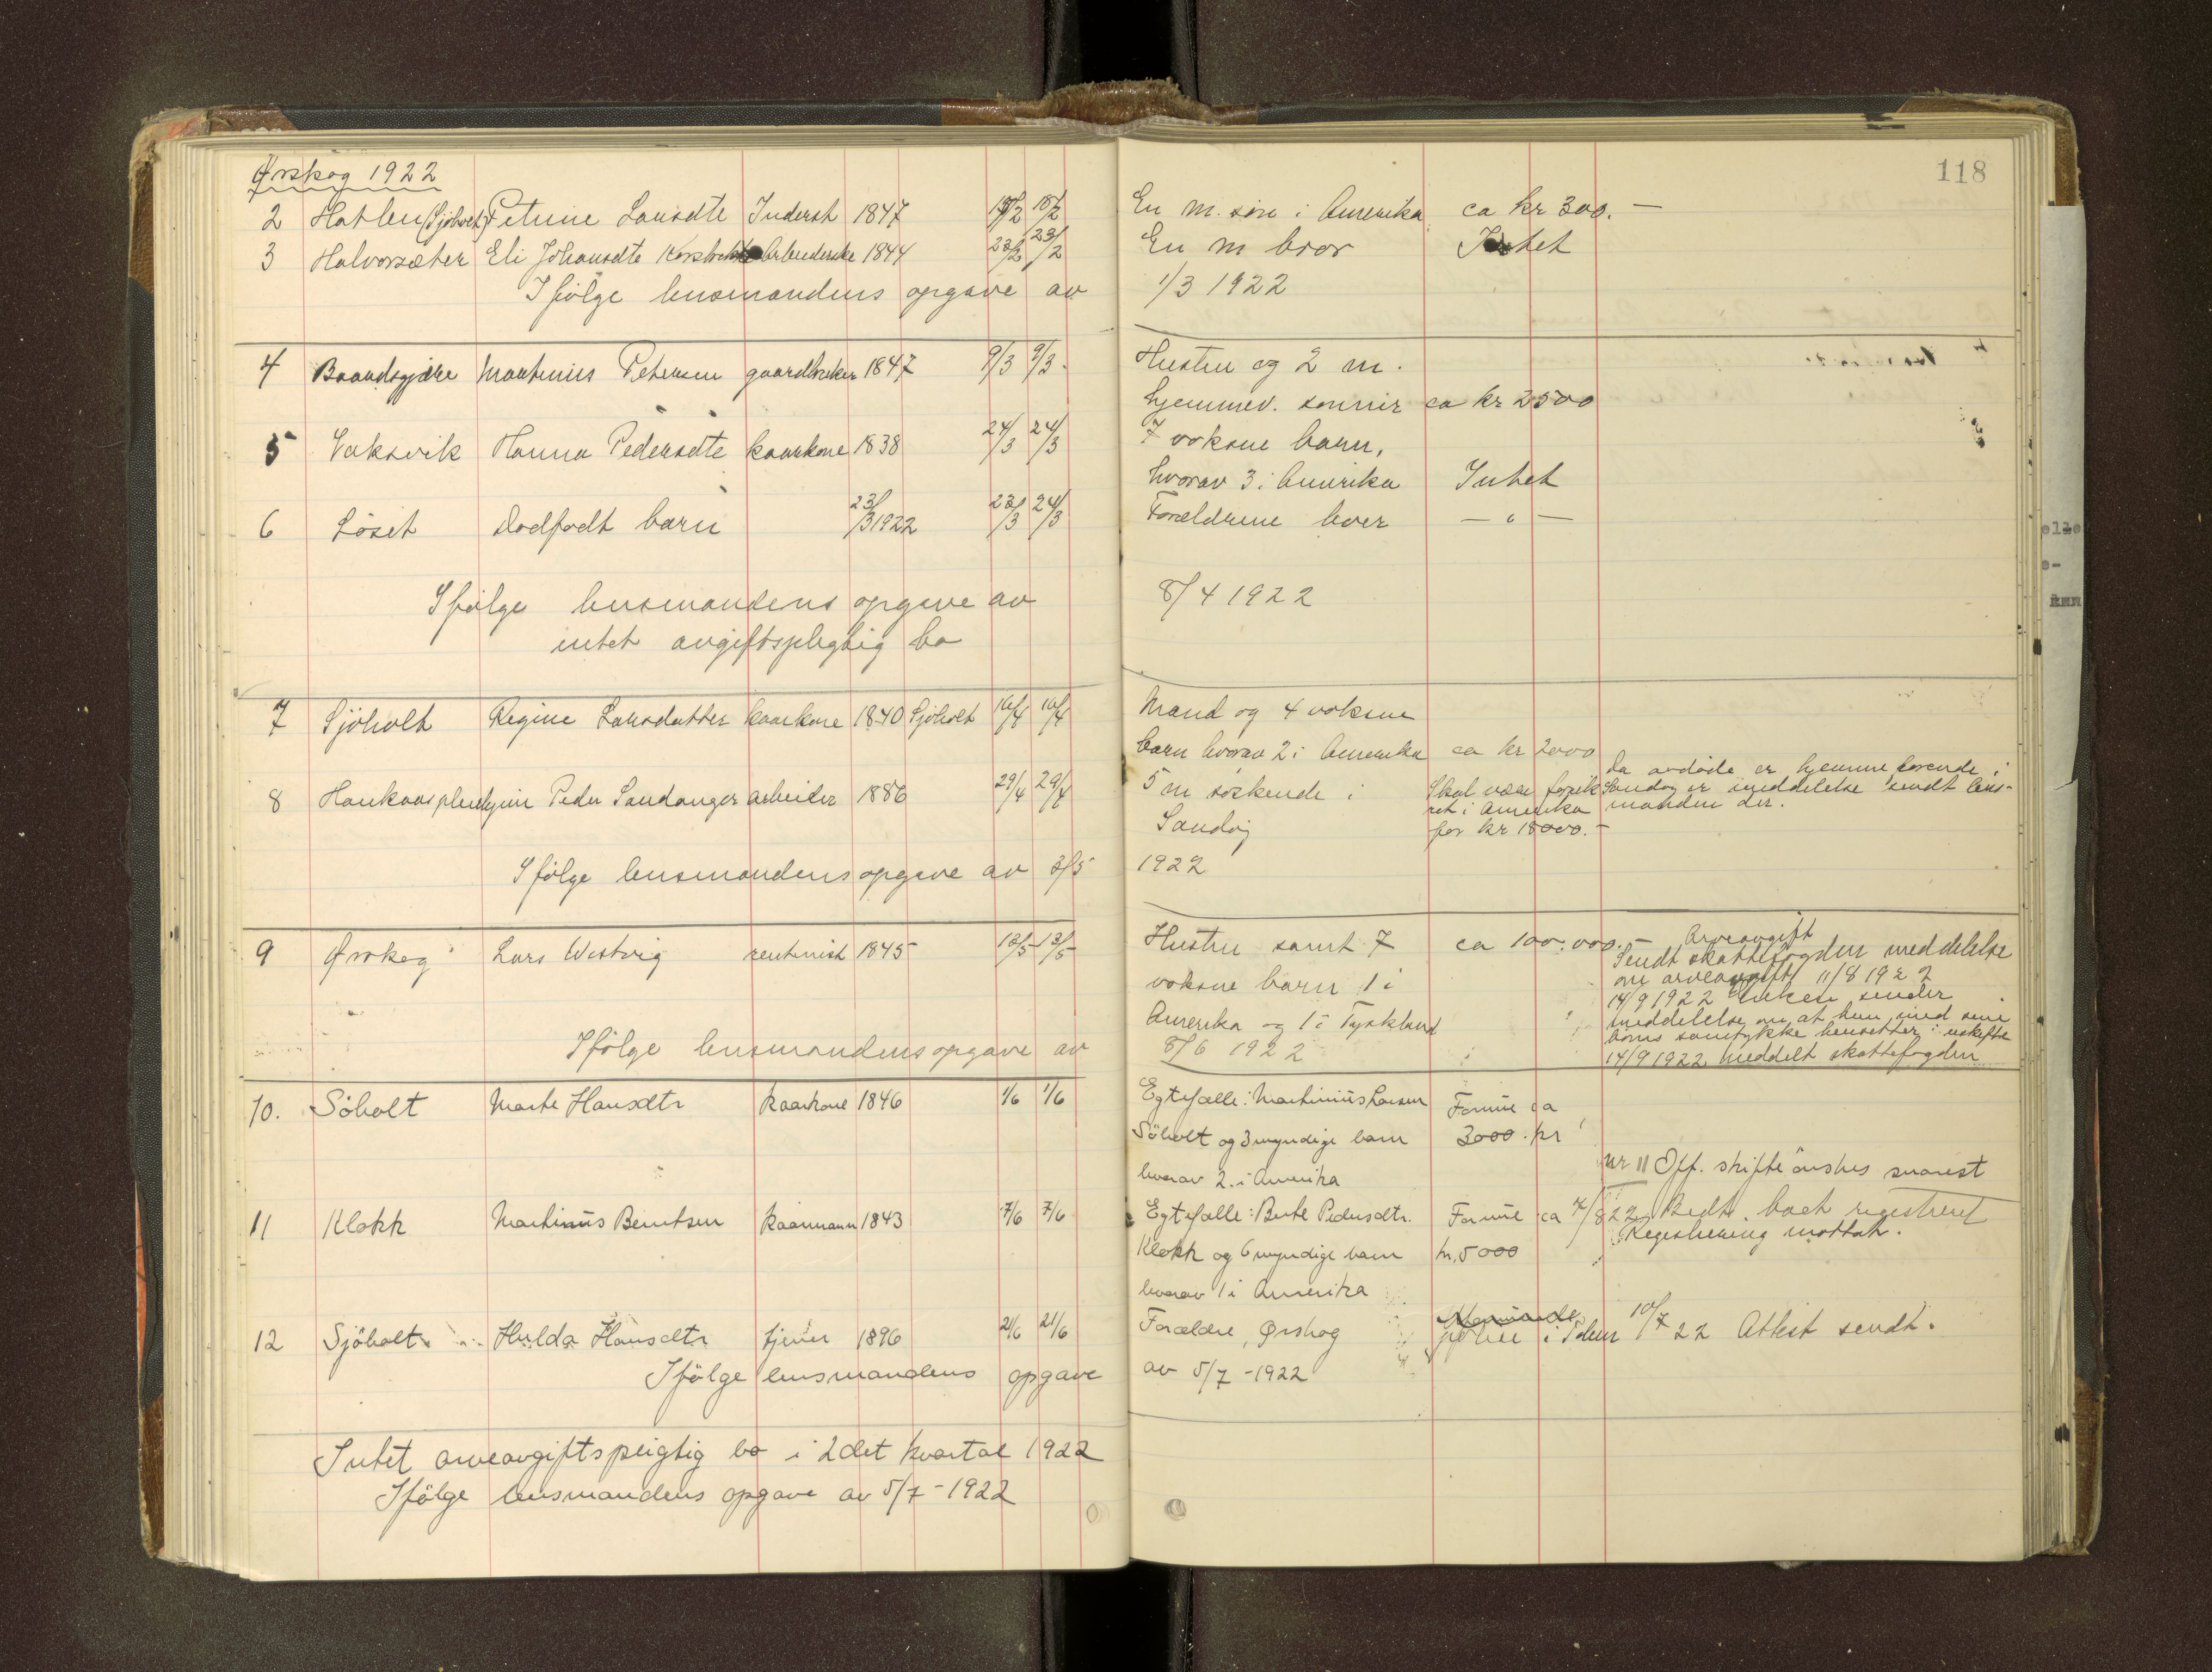 118
Ørskog 1922
2 Hatlen (Sjöholt) Petrine Larsdtr Inderst 1847 18/2 18/2 En m. sön i Amerika ca kr 300. —
3 Halvorsæter Eli Johansdtr Arbeiderske 1844 23/2 23/2 En m bror Intet
Ifölge lensmandens opgave av 1/3 1922
4 Martinus Petersen gaardbruker 1847 9/3 9/3 Hustru og 2 m.
hjemmev. sönner ca kr 2500
5 Vaksvik Hanna Pedersdtr kaarkone 1838 24/3 24/3 7 voksne barn,
hvorav 3 i Amerika Intet
6 Löset dødfødt barn 23/3 1922 23/3 24/3 Forældrene lever — " —
Ifölge lensmandens opgave av 8/4 1922
intet avgiftspligtig bo
7 Sjöholt Regine Larsdatter kaarkone 1840 Sjöholt 16/4 16/4 Mand og 4 voksne
barn hvorav 2 i Amerika ca kr 2000
8 Peder Sandanger arbeider 1886 29/4 29/4 5 m söskende i
Sandöy
Skal være forsik
ret i Amerika
for kr 18000. —
Da avdöde er hjemmehörende i
Sandöy er meddelelse sendt lens-
manden der.
Ifölge lensmandens opgave av 3/5 1922
9 Ørskog Lars Westvig rentenist 1845 13/5 13/5 Hustru samt 7 ca 100.000. —
voksne barn 1 i
Amerika og 1 i Tyskland
Arveavgift
Sendt skattefogden meddelelse
om arveavgift 11/8 1922
14/9 1922 Enken sender
meddelelse om at hun med sine
barns samtykke hensitter i uskifte
14/9 1922 meddelt skattefogden
Ifölge lensmandens opgave av 8/6 1922
10. Söholt Marte Hansdtr kaarkone 1846 1/6 1/6 Egtefælle: Martinius Larsen Formue ca
Söholt og 3 myndige barn 3000. kr
hvorav 2. i Amerika
nr 11 Off. skifte önskes snarest
11 Klokk Martinus Berntsen kaarmann 1843 7/6 7/6 Egtefælle: Berte Pedersdtr. Formue ca 7/8 22 Bedt boet registreret
Klokk og 6 myndige barn kr. 5000 Registrering mottat.
hvorav 1 i Amerika
12 Sjöholt Hulda Hansdtr tjener 1896 21/6 21/6 Forældre, Ørskog 10/7 22 Attest sendt.
Ifölge lensmandens opgave av 5/7 - 1922
Intet arveavgiftspligtig bo i 2det kvartal 1922
Ifölge lensmandens opgave av 5/7 - 1922